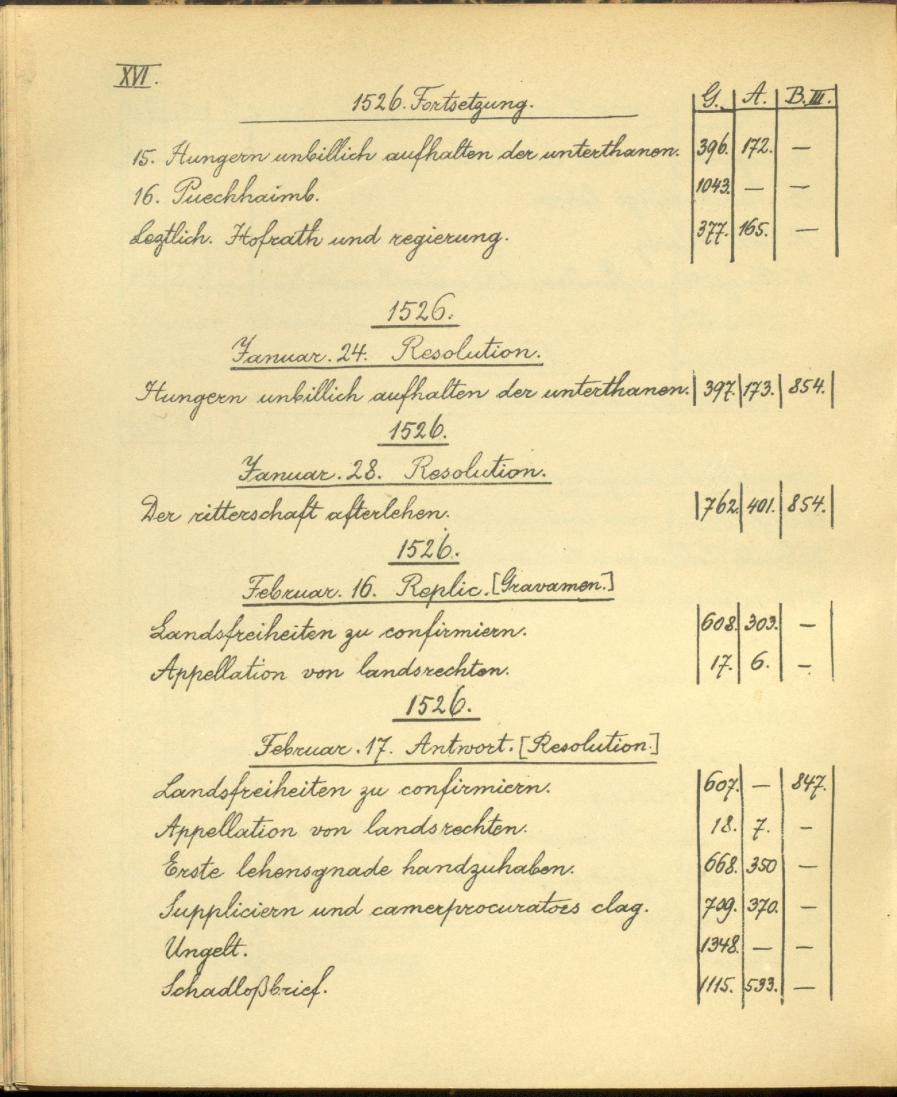 XVI.
1526. Fortsetzung. G. A. B.III.
15. Hungern unbillich aufhalten der unterthanen. 396. 172. —
16. Puechhaimb. 1043. — —
Leztlich. Hofrath und regierung. 377. 165. —
1526.
Januar. 24. Resolution.
Hungern unbillich aufhalten der unterthanen. 397. 173. 854.
1526.
Januar. 28. Resolution.
Der ritterschaft afterlehen. 762. 401. 854.
1526.
Februar. 16. Replic. [Gravamen.]
Landsfreiheiten zu confirmiern. 608. 303. —
Appellation von landsrechten. 17. 6. —
1526.
Februar. 17. Antwort. [Resolution.]
Landsfreiheiten zu confirmiern. 607. — 847.
Appellation von landsrechten. 18. 7. —
Erste lehensgnade handzuhaben. 668. 350 —
Suppliciern und camerprocurators clag. 709. 370. —
Ungelt. 1348. — —
Schadloßbrief. 1115. 593. —